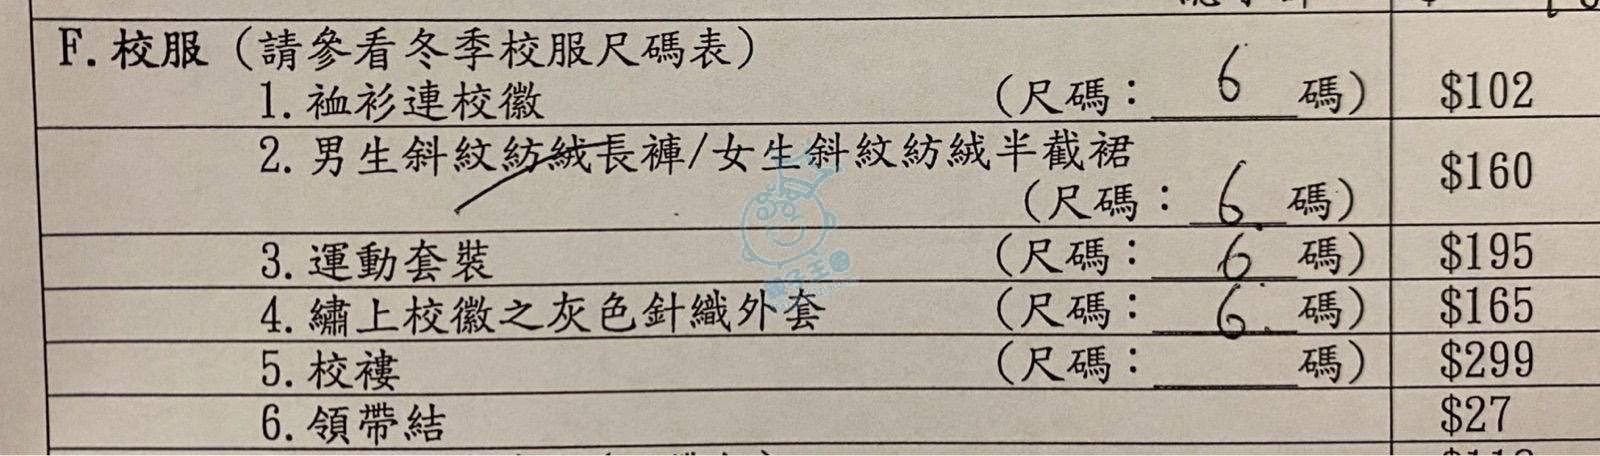 F. 校服（請參看冬季校服尺碼表）
1. 裇衫連校徽 （尺碼：6碼） $102
2. 男生斜紋紡絨長褲/女生斜紋紡絨半截裙
（尺碼：6碼） $160
3. 運動套裝 （尺碼：6碼） $195
4. 繡上校徽之灰色針織外套 （尺碼：6碼） $165
5. 校褸 （尺碼：____碼） $299
6. 領帶結 $27